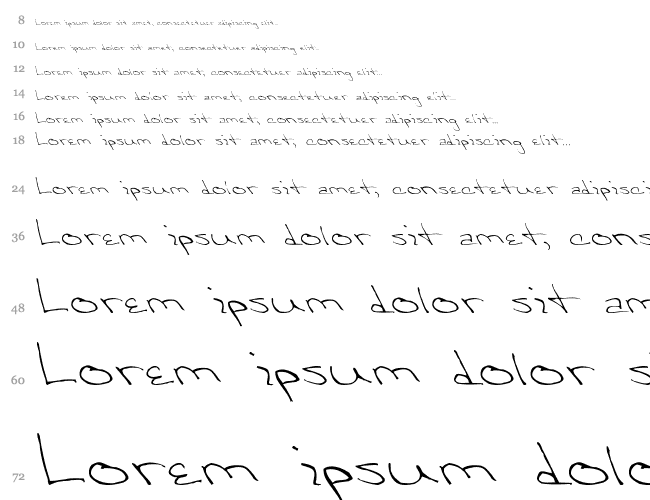 8 Lorem ipsum dolor sit amet, consectetuer adipiscing elit...
10 Lorem ipsum dolor sit amet, consectetuer adipiscing elit...
12 Lorem ipsum dolor sit amet, consectetuer adipiscing elit...
14 Lorem ipsum dolor sit amet, consectetuer adipiscing elit...
16 Lorem ipsum dolor sit amet, consectetuer adipiscing elit...
18 Lorem ipsum dolor sit amet, consectetuer adipiscing elit...
24 Lorem ipsum dolor sit amet, consectetuer adipisci
36 Lorem ipsum dolor sit amet, cons
48 Lorem ipsum dolor sit am
60 Lorem ipsum dolor s
72 Lorem ipsum dolo